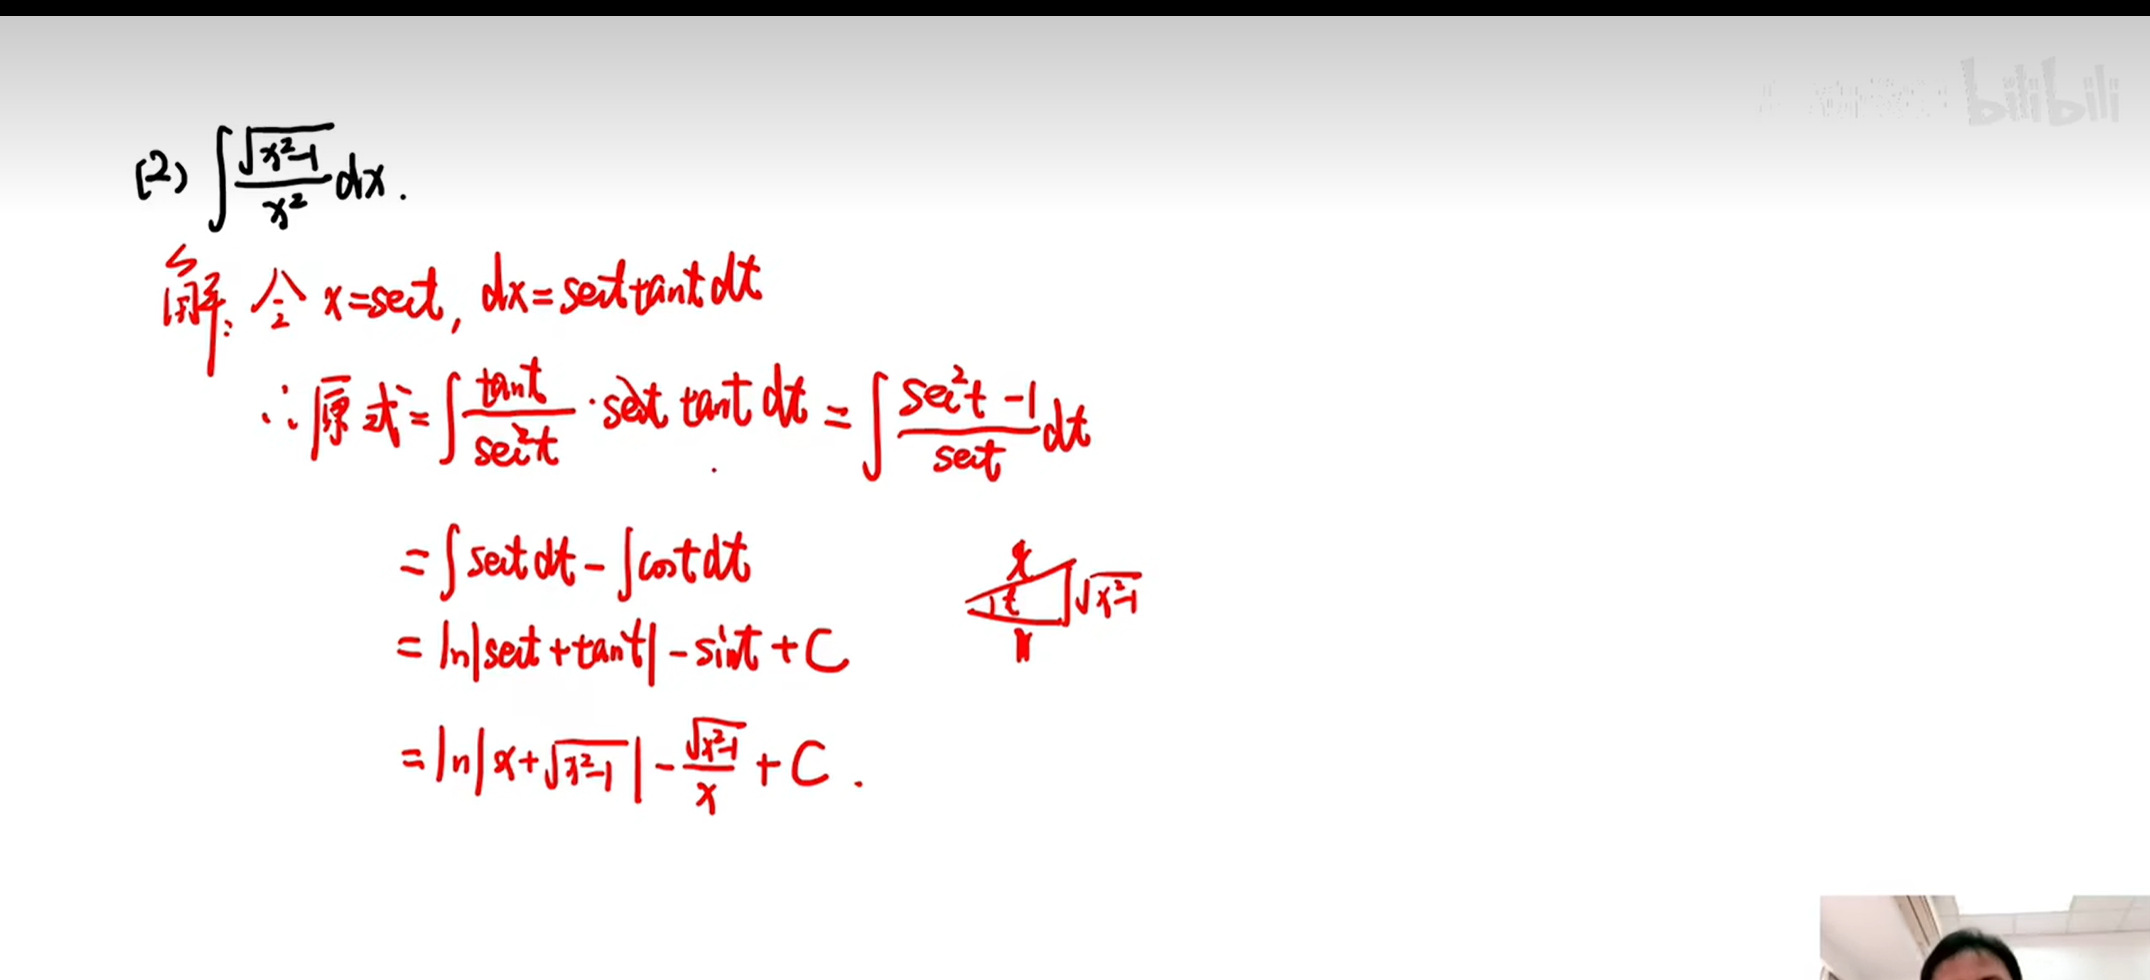 bilibili
(2) ∫ √(x²-1)/x² dx.
解: 令 x=sect, dx=sect tant dt
∴ 原式 = ∫ tant/sec²t · sect tant dt = ∫ (sec²t - 1)/sect dt
= ∫ sect dt - ∫ cost dt
x
t
√(x²-1)
= ln|sect + tant| - sint + C
= ln|x + √(x²-1)| - √(x²-1)/x + C.